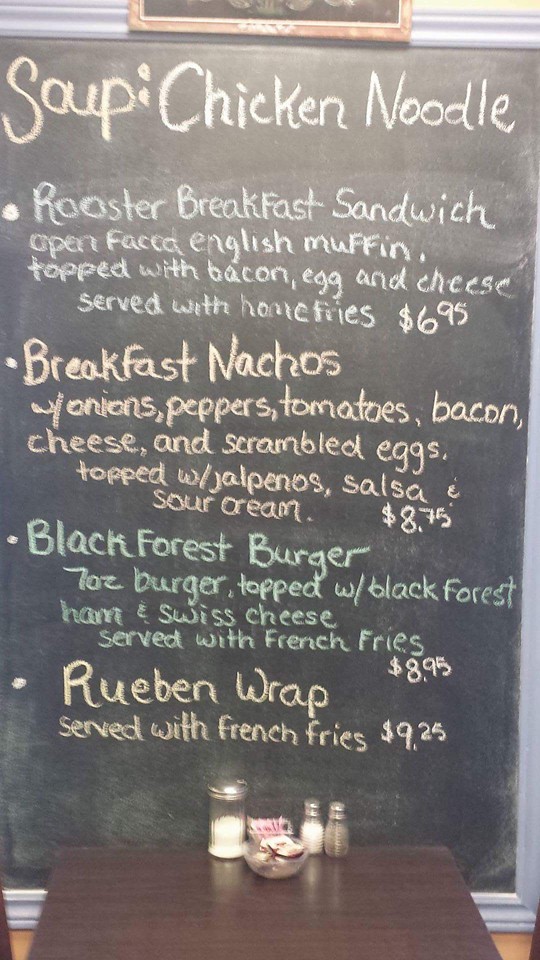 Soup: Chicken Noodle
• Rooster Breakfast Sandwich
open Faced english muffin.
topped with bacon, egg and cheese
served with homefries $6.95
• Breakfast Nachos
w/onions, peppers, tomatoes, bacon,
cheese, and scrambled eggs.
topped w/jalpenos, salsa &
sour cream. $8.75
• Black Forest Burger
7oz burger, topped w/black Forest
ham & swiss cheese
served with French Fries
$8.95
• Rueben Wrap
served with french fries $9.25